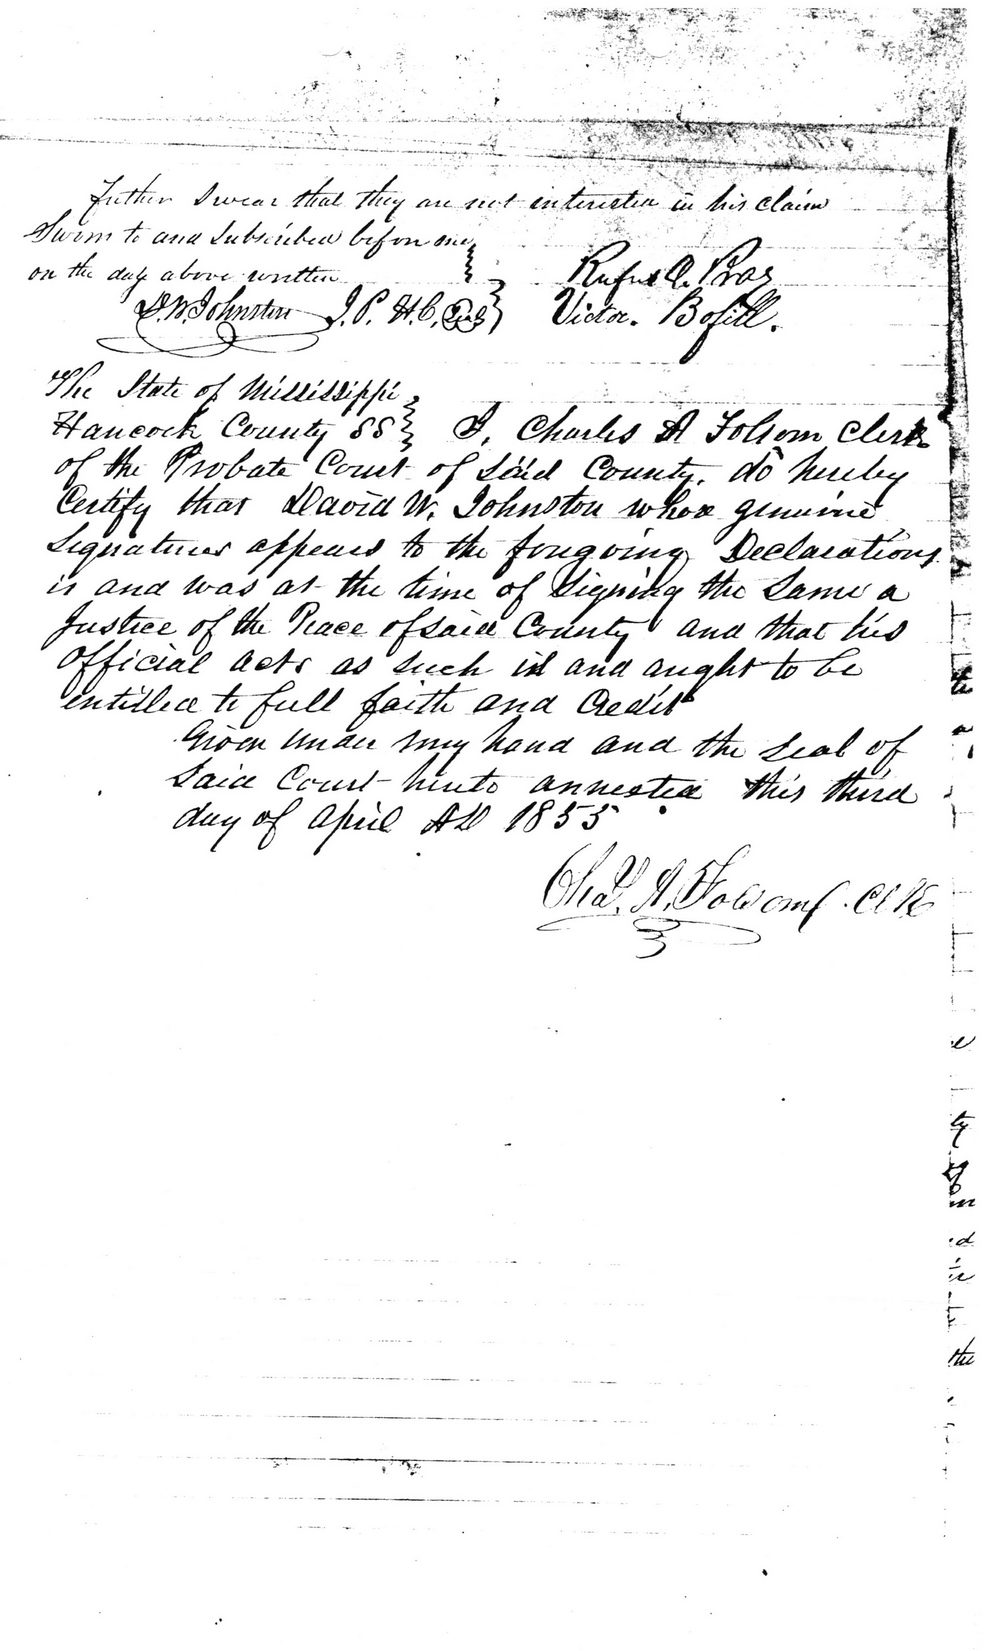 further swear that they are not interested in his claim
Sworn to and Subscribed before me
on the day above written
Rufus Q. Pray
D. W. Johnston J. P. H. C.
Victor. Bofill.
The State of Mississippi
Hancock County SS I, Charles A Folsom Clerk
of the Probate Court of Said County. do hereby
Certify that David W. Johnston whose genuine
Signatures appears to the foregoing Declarations
is and was at the time of Signing the Same a
Justice of the Peace of Said County and that his
Official Acts as such is and aught to be
entitled to full faith and Credit
Given under my hand and the Seal of
Said Court hereto annexted this third
day of April AD 1855
Chas. A. Folsom. Clk
the